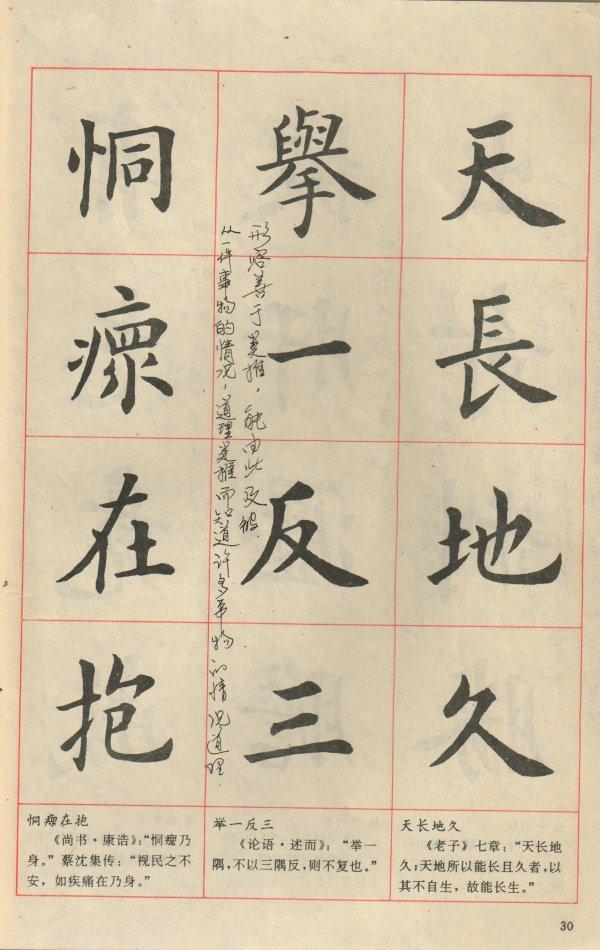 天長地久
舉一反三
形容善于类推，能由此及彼.
从一件事物的情况，道理类推而知道许多事物的情况道理.
恫瘝在抱
天长地久
《老子》七章：“天长地
久；天地所以能长且久者，以
其不自生，故能长生。”
举一反三
《论语·述而》：“举一
隅，不以三隅反，则不复也。”
恫瘝在抱
《尚书·康诰》：“恫瘝乃
身。”蔡沈集传：“视民之不
安，如疾痛在乃身。”
30